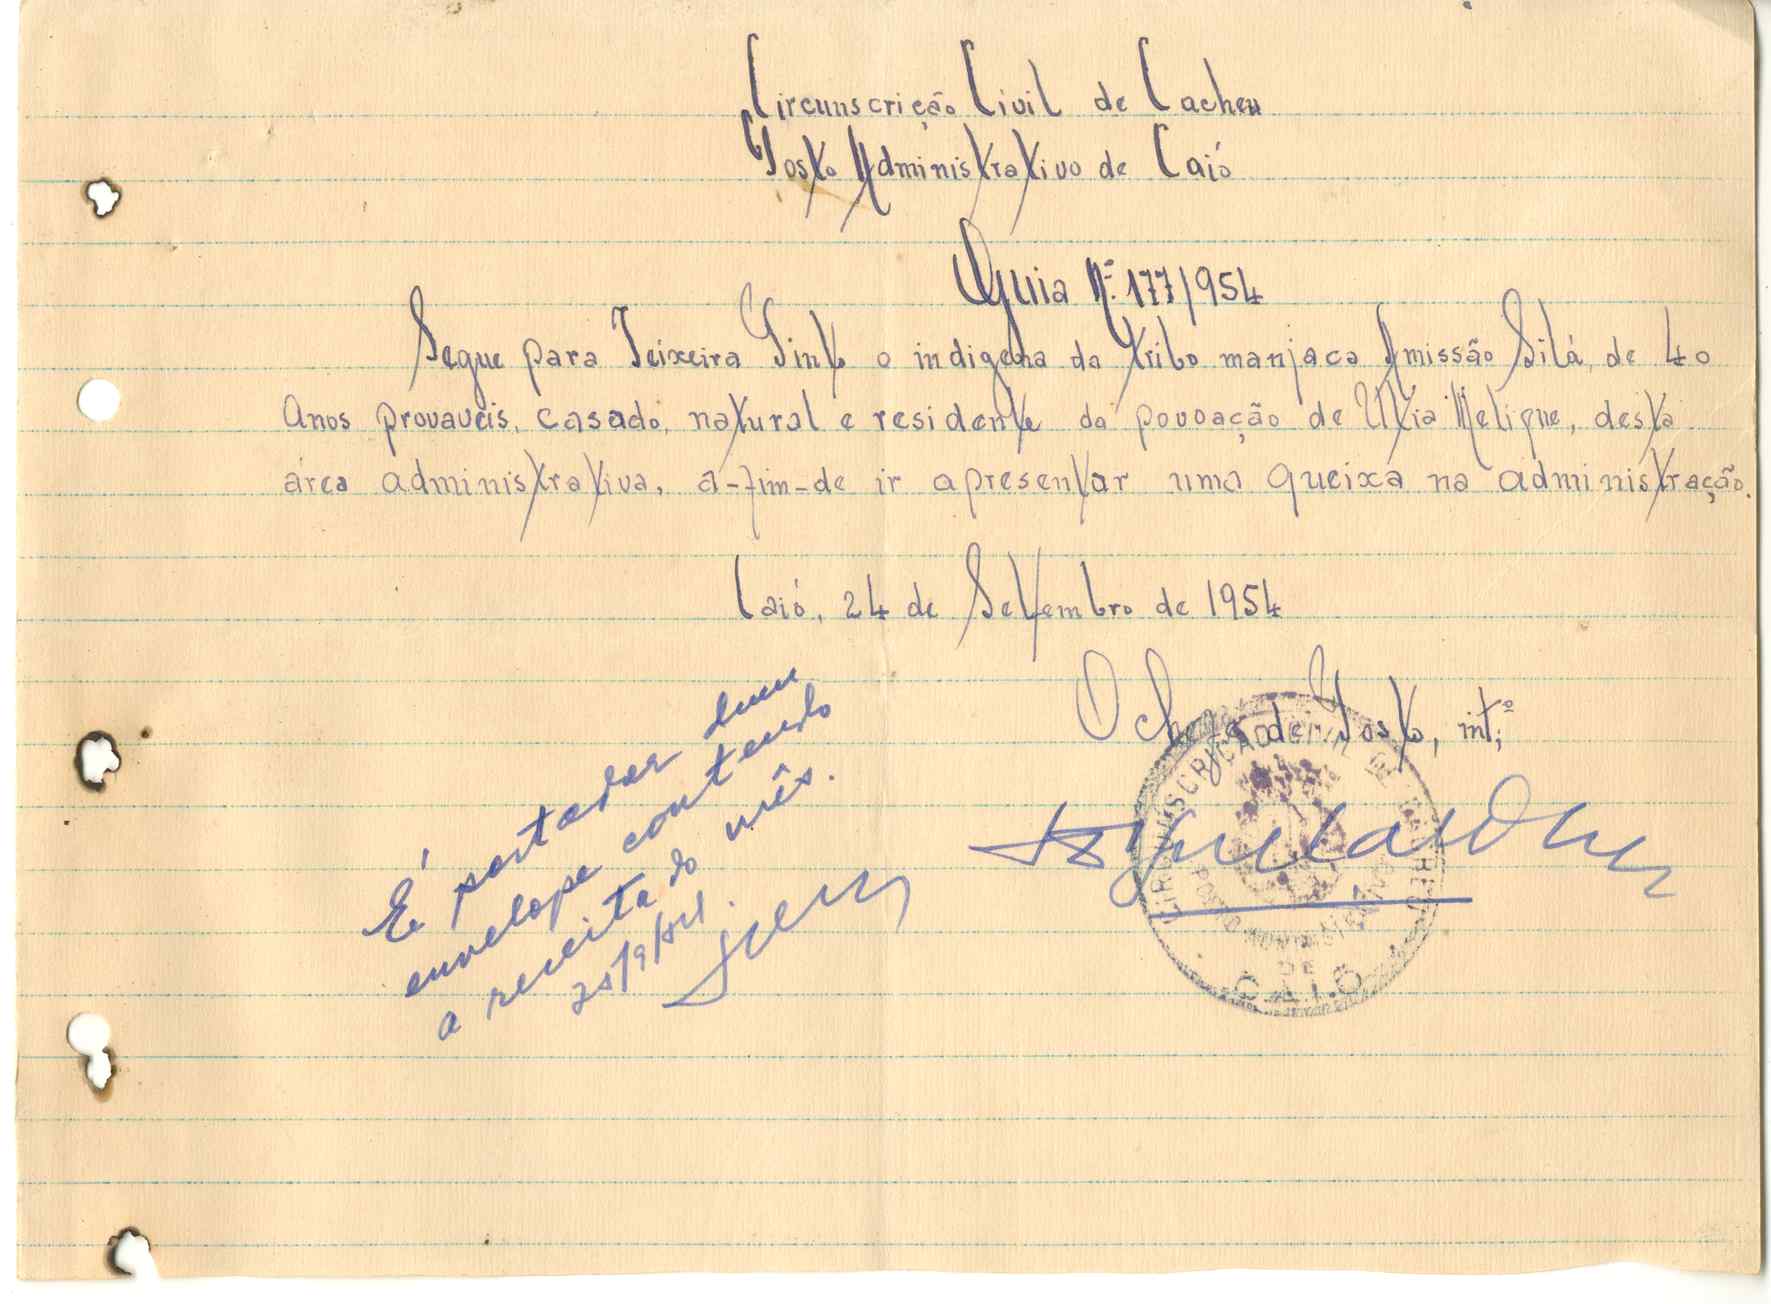 Circunscrição Civil de Cacheu
Posto Administrativo de Caió
Guia Nº 177/954
Segue para Teixeira Pinto o indigena da tribo manjaca Amissão Silá, de 40
anos provaveis, casado, natural e residente da povoação de Utia Melique, desta
área administrativa, a-fim-de ir apresentar uma queixa na administração.
Caió, 24 de Setembro de 1954
O chefe de Posto, intº;
CIRCUNSCRIÇÃO CIVIL DE CACHEU
POSTO ADMINISTRATIVO
DE
CAIÓ
É portador dum
envelope contendo
a receita do mês.
25/9/54.